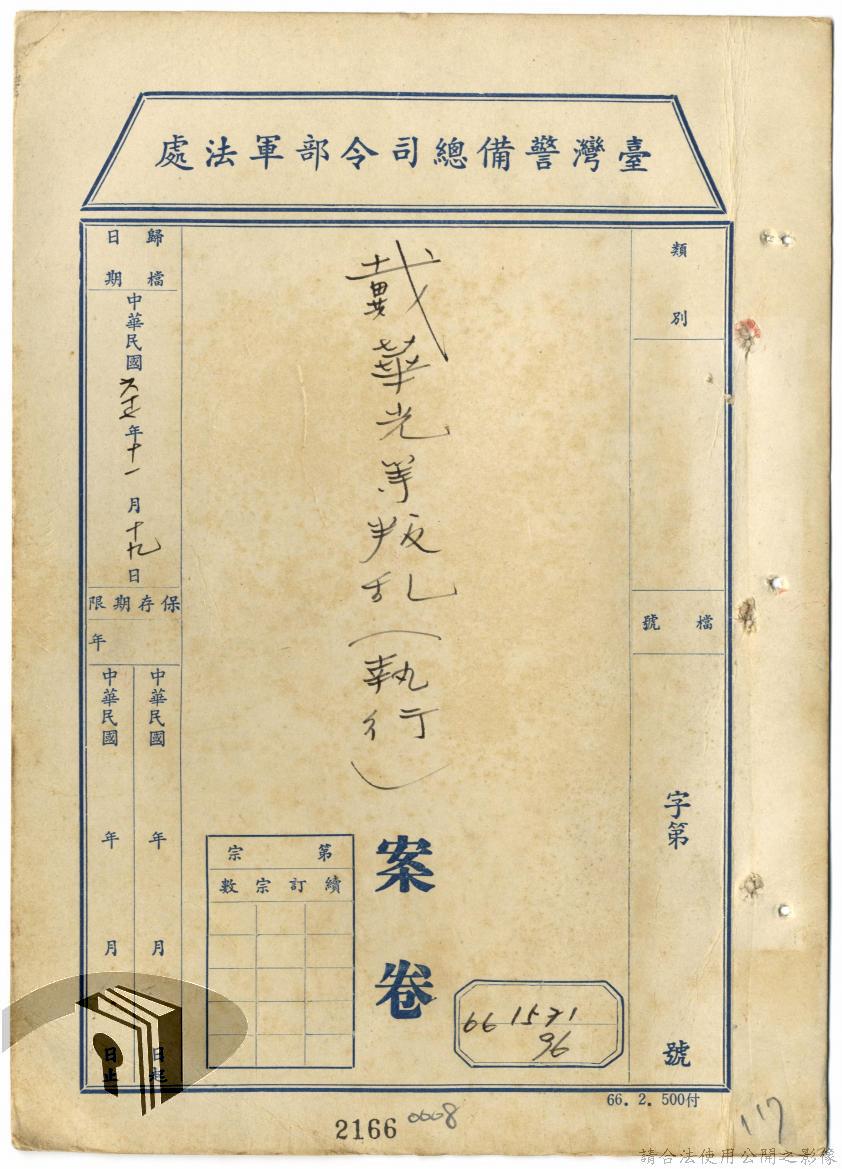 臺灣警備總司令部軍法處
類別
檔號
字第
號
戴華光等叛乱(執行)
案卷
第宗
續訂宗數
66 1571
96
歸檔日期
中華民國六十七年十一月十九日
保存期限
年
中華民國 年 月 日起
中華民國 年 月 日止
66. 2. 500付
2166
0008
117
請合法使用公開之影像